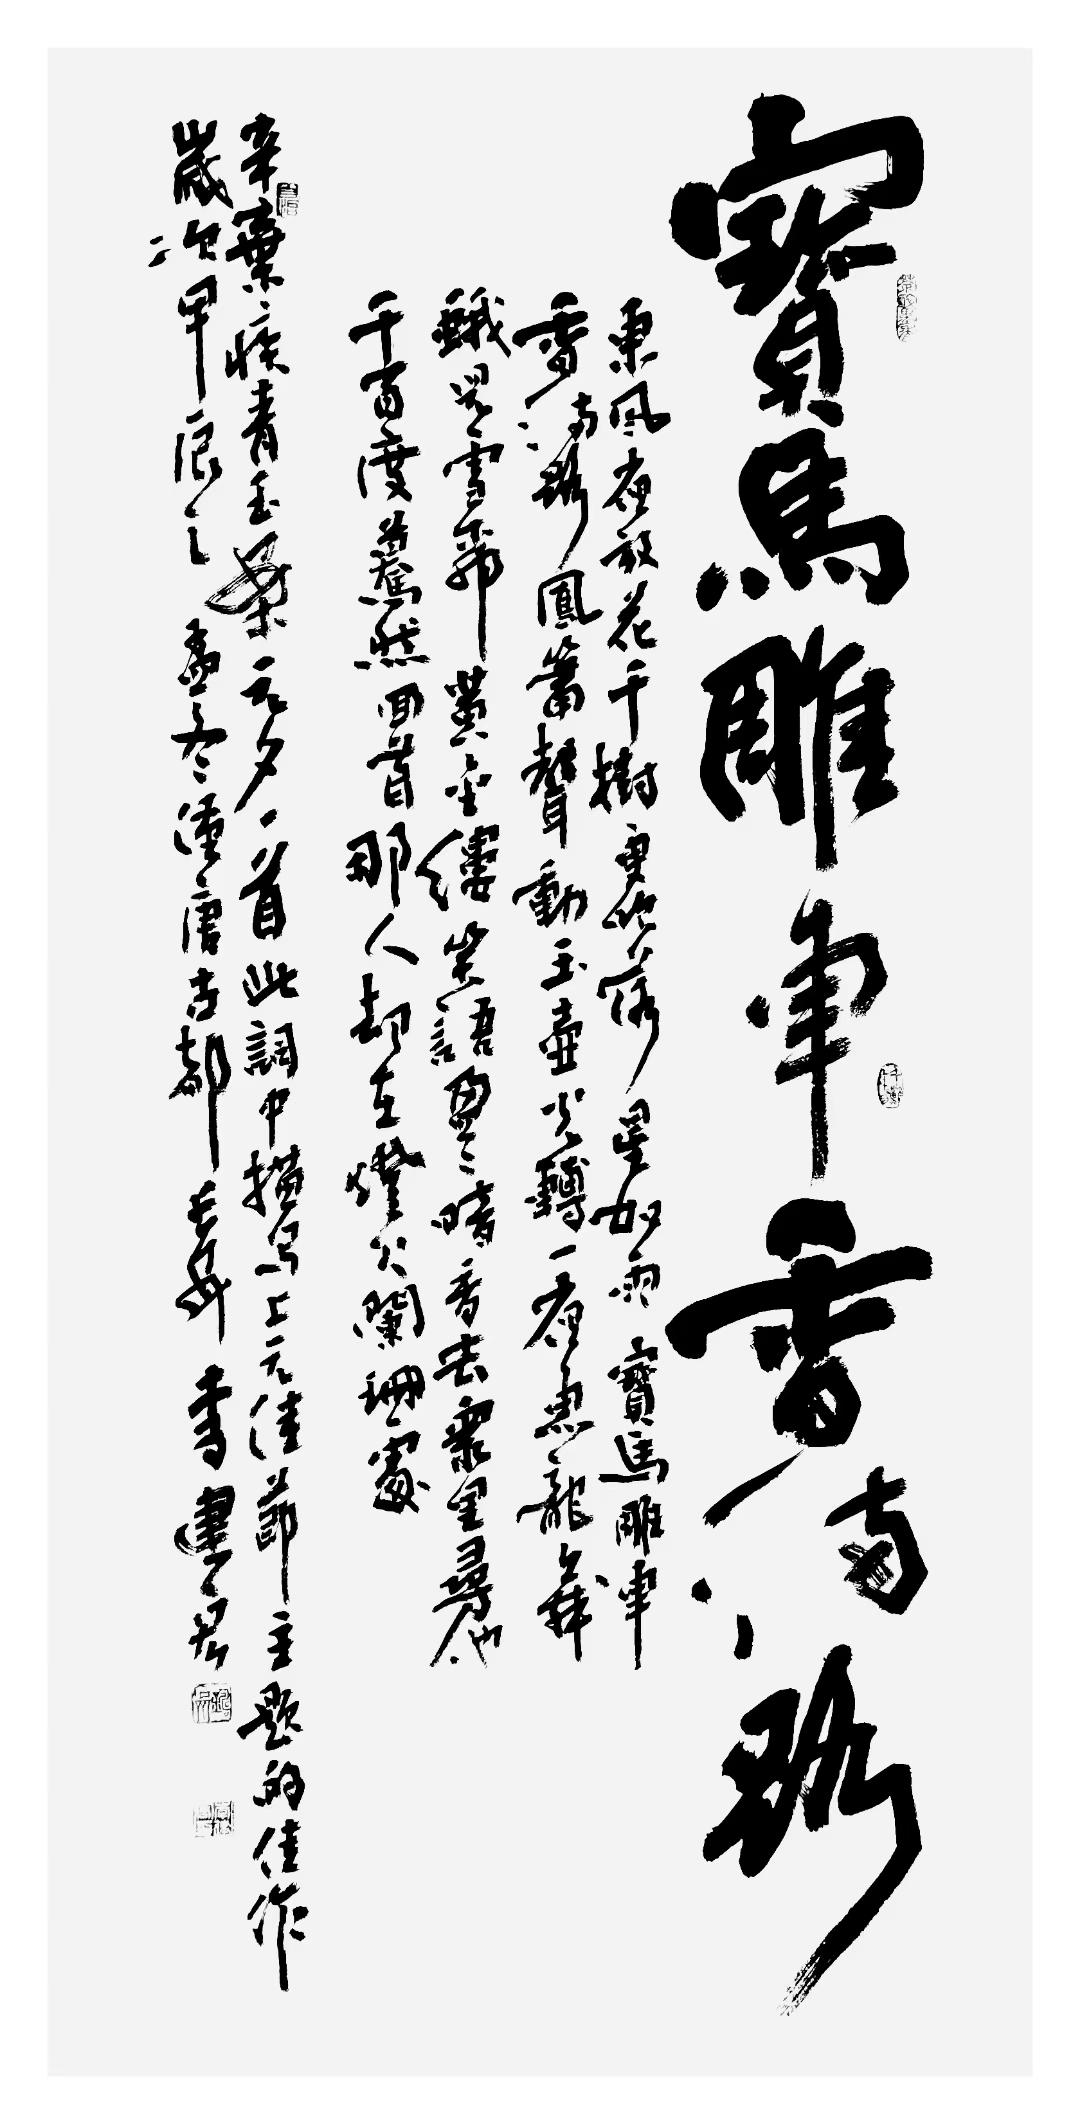 寶馬雕車香滿路
東風夜放花千樹更吹落星如雨寶馬雕車
香滿路鳳簫聲動玉壺光轉一夜魚龍舞
蛾兒雪柳黃金縷笑語盈盈暗香去衆里尋他
千百度驀然回首那人却在燈火闌珊處
辛棄疾青玉案元夕一首此詞中描寫上元佳節主題的佳作
歲次甲辰之孟冬漢唐古都長安 李建民